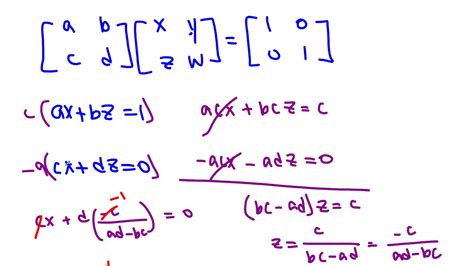 [a b; c d] [x y; z w] = [1 0; 0 1]
c(ax+bz=1) acx + bcz = c
-a(cx+dz=0) -acx - adz = 0
(bc-ad)z = c
cx + d(-c/(ad-bc)) = 0
-1
z = c/(bc-ad) = -c/(ad-bc)